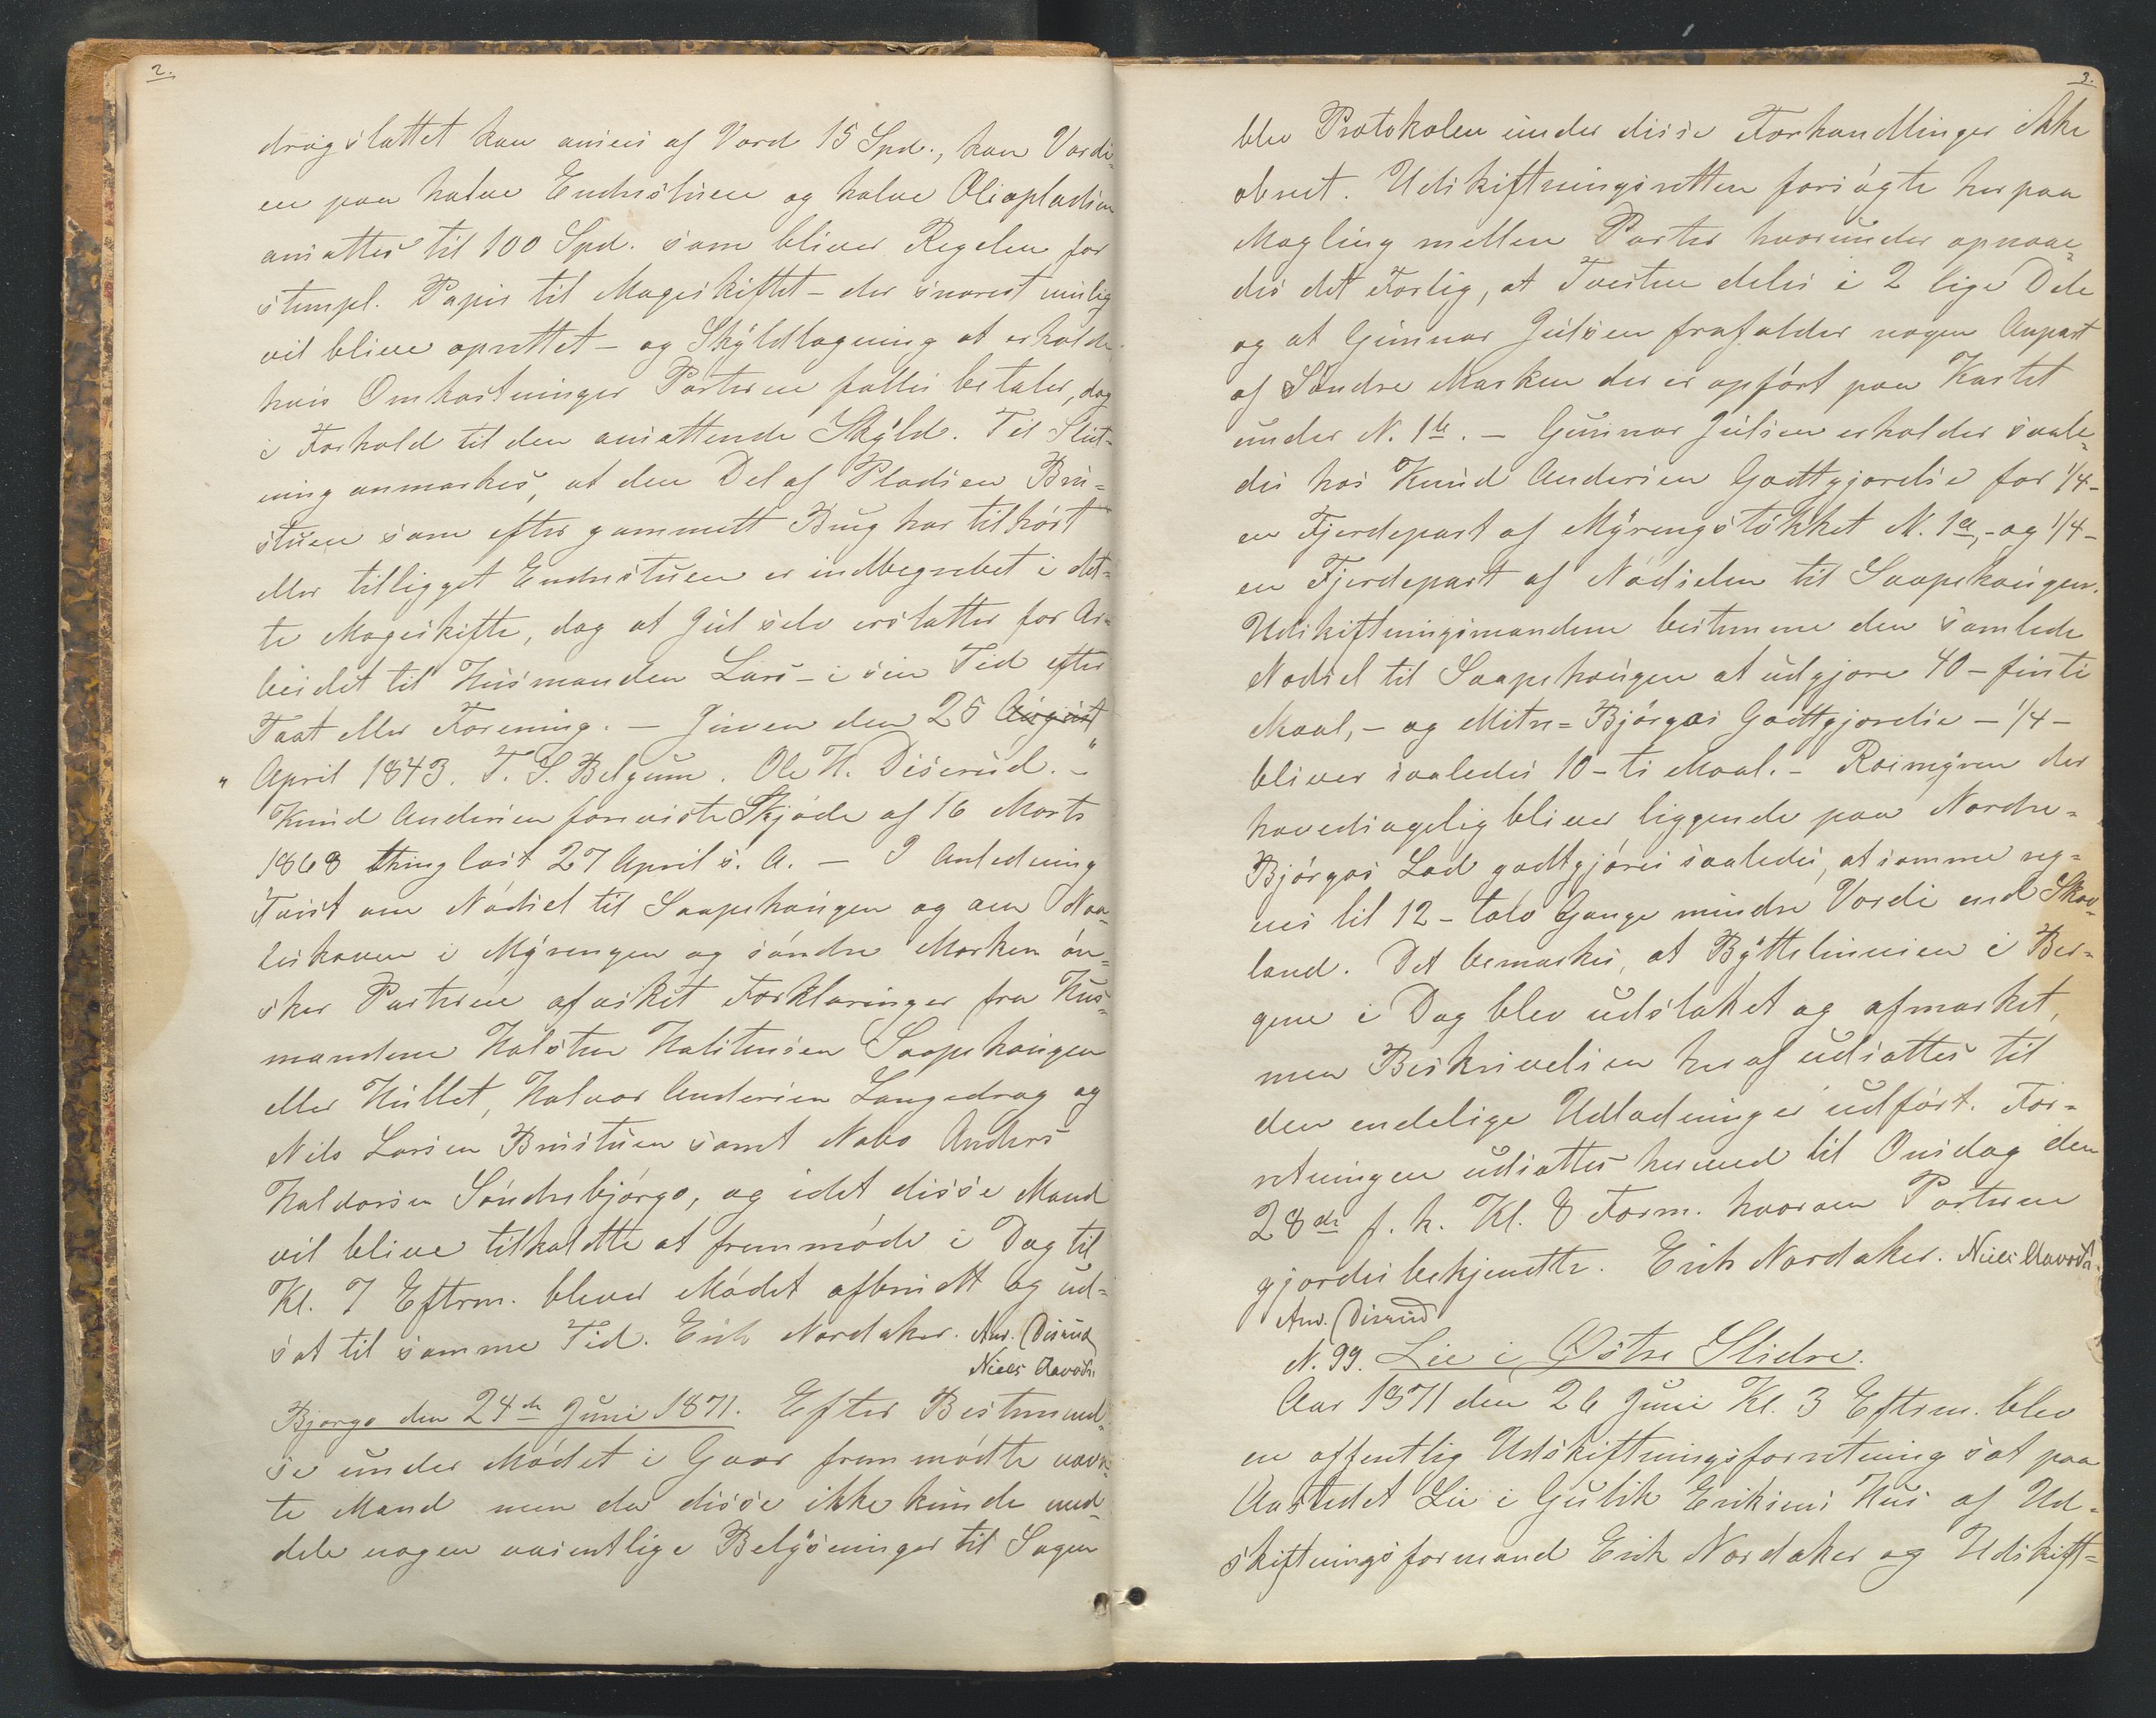 2.
dragslættet kan ansees af Værd 15 Spd., kan Værdi-
en paa halve Endrestuen og halve Oliapladsen
ansættes til 100 Spd. som bliver Regelen for
stempl. Papir til Mageskiftet – der snarest mulig
vil blive oprettet – og Skyldlægning at erholde
hvis Omkostninger Parterne fælles betaler, dog
i Forhold til den ansættende Skyld. Til Slut-
ning anmærkes, at den Del af Pladsen Bru-
stuen som efter gammelt Brug har tilhørt
eller tilligget Endrestuen er indbegrebet i det-
te Mageskifte, dog at Juel selv erstatter for Ar-
beidet til Husmanden Lars – i sin Tid efter
Taxt eller Forening. – Juven den 25 August
" April 1843. T. S. Belgum. Ole H. Diserud. – "
Knud Andersen foreviste Skjøde af 16 Marts
1868 thinglæst 27 April s. A. – I Anledning
Tvist om Nødsel til Saapehaugen og om Naa-
leskoven i Myrengen og søndre Marken øn-
sker Parterne afæsket Forklaringer fra Hus-
mændene Halsten Halstensen Saapehaugen
eller Hullet, Halvor Andersen Langedrag og
Nils Larsen Brustuen samt Nabo Anders
Haldorsen Søndrebjørgo, og idet disse Mænd
vil blive tilkaldte at fremmøde i Dag til
Kl. 7 Efterm. blever Mødet afbrudt og ud-
sat til samme Tid. Erik Nordaker. And. Diserud
Niels Aavodn
Bjørgo den 24de Juni 1871. Efter Bestemmel-
se under Mødet i Gaar fremmødte nævn-
te Mænd men da disse ikke kunde med-
dele nogen væsentlige Belysninger til Sagen
3.
blev Protokolen under disse Forhandlinger ikke
abnet. Udskiftningsretten forsøgte herpaa
Mægling mellem Parter hvorunder opnaae-
des det Forlig, at Tvisten deles i 2 lige Dele
og at Gunnar Juelsen frafalder nogen Anpart
af Søndre Marken der er opført paa Kartet
under N. 1b. – Gunnar Juelsen erholder saale-
des hos Knud Andersen Godtgjørelse for 1/4 –
en Fjerdepart af Myrengstøkket N. 1a, – og 1/4 –
en Fjerdepart af Nødselen til Saapehaugen.
Udskiftningsmændene bestemme den samlede
Nødsel til Saapehaugen at udgjøre 40 – firti
Maal, – og Mitre-Bjørgos Godtgjørelse – 1/4 –
bliver saaledes 10 – ti Maal. – Roimyren der
hovedsagelig bliver liggende paa Nordre-
Bjørgos Lod godtgjøres saaledes, at samme reg-
nes til 12 – tolv Gange mindre Værdi end Skov-
land. Det bemærkes, at Bytteliniien i Ber-
gene i Dag blev udstaket og afmærket,
men Beskrivelsen heraf udsættes til
den endelige Udlodning er udført. For-
retningen udsættes hermed til Onsdag den
28de f. k. Kl. 8 Form. hvorom Parterne
gjordes bekjendte. Erik Nordaker. Niels Aavodn.
And. Diserud
N. 99. Lie i Østre Slidre.
Aar 1871 den 26 Juni Kl. 3 Efterm. blev
en offentlig Udskiftningsforretning sat paa
Aastedet Lie i Gulik Eriksens Hus af Ud-
skiftningsformand Erik Nordaker og Udskift-